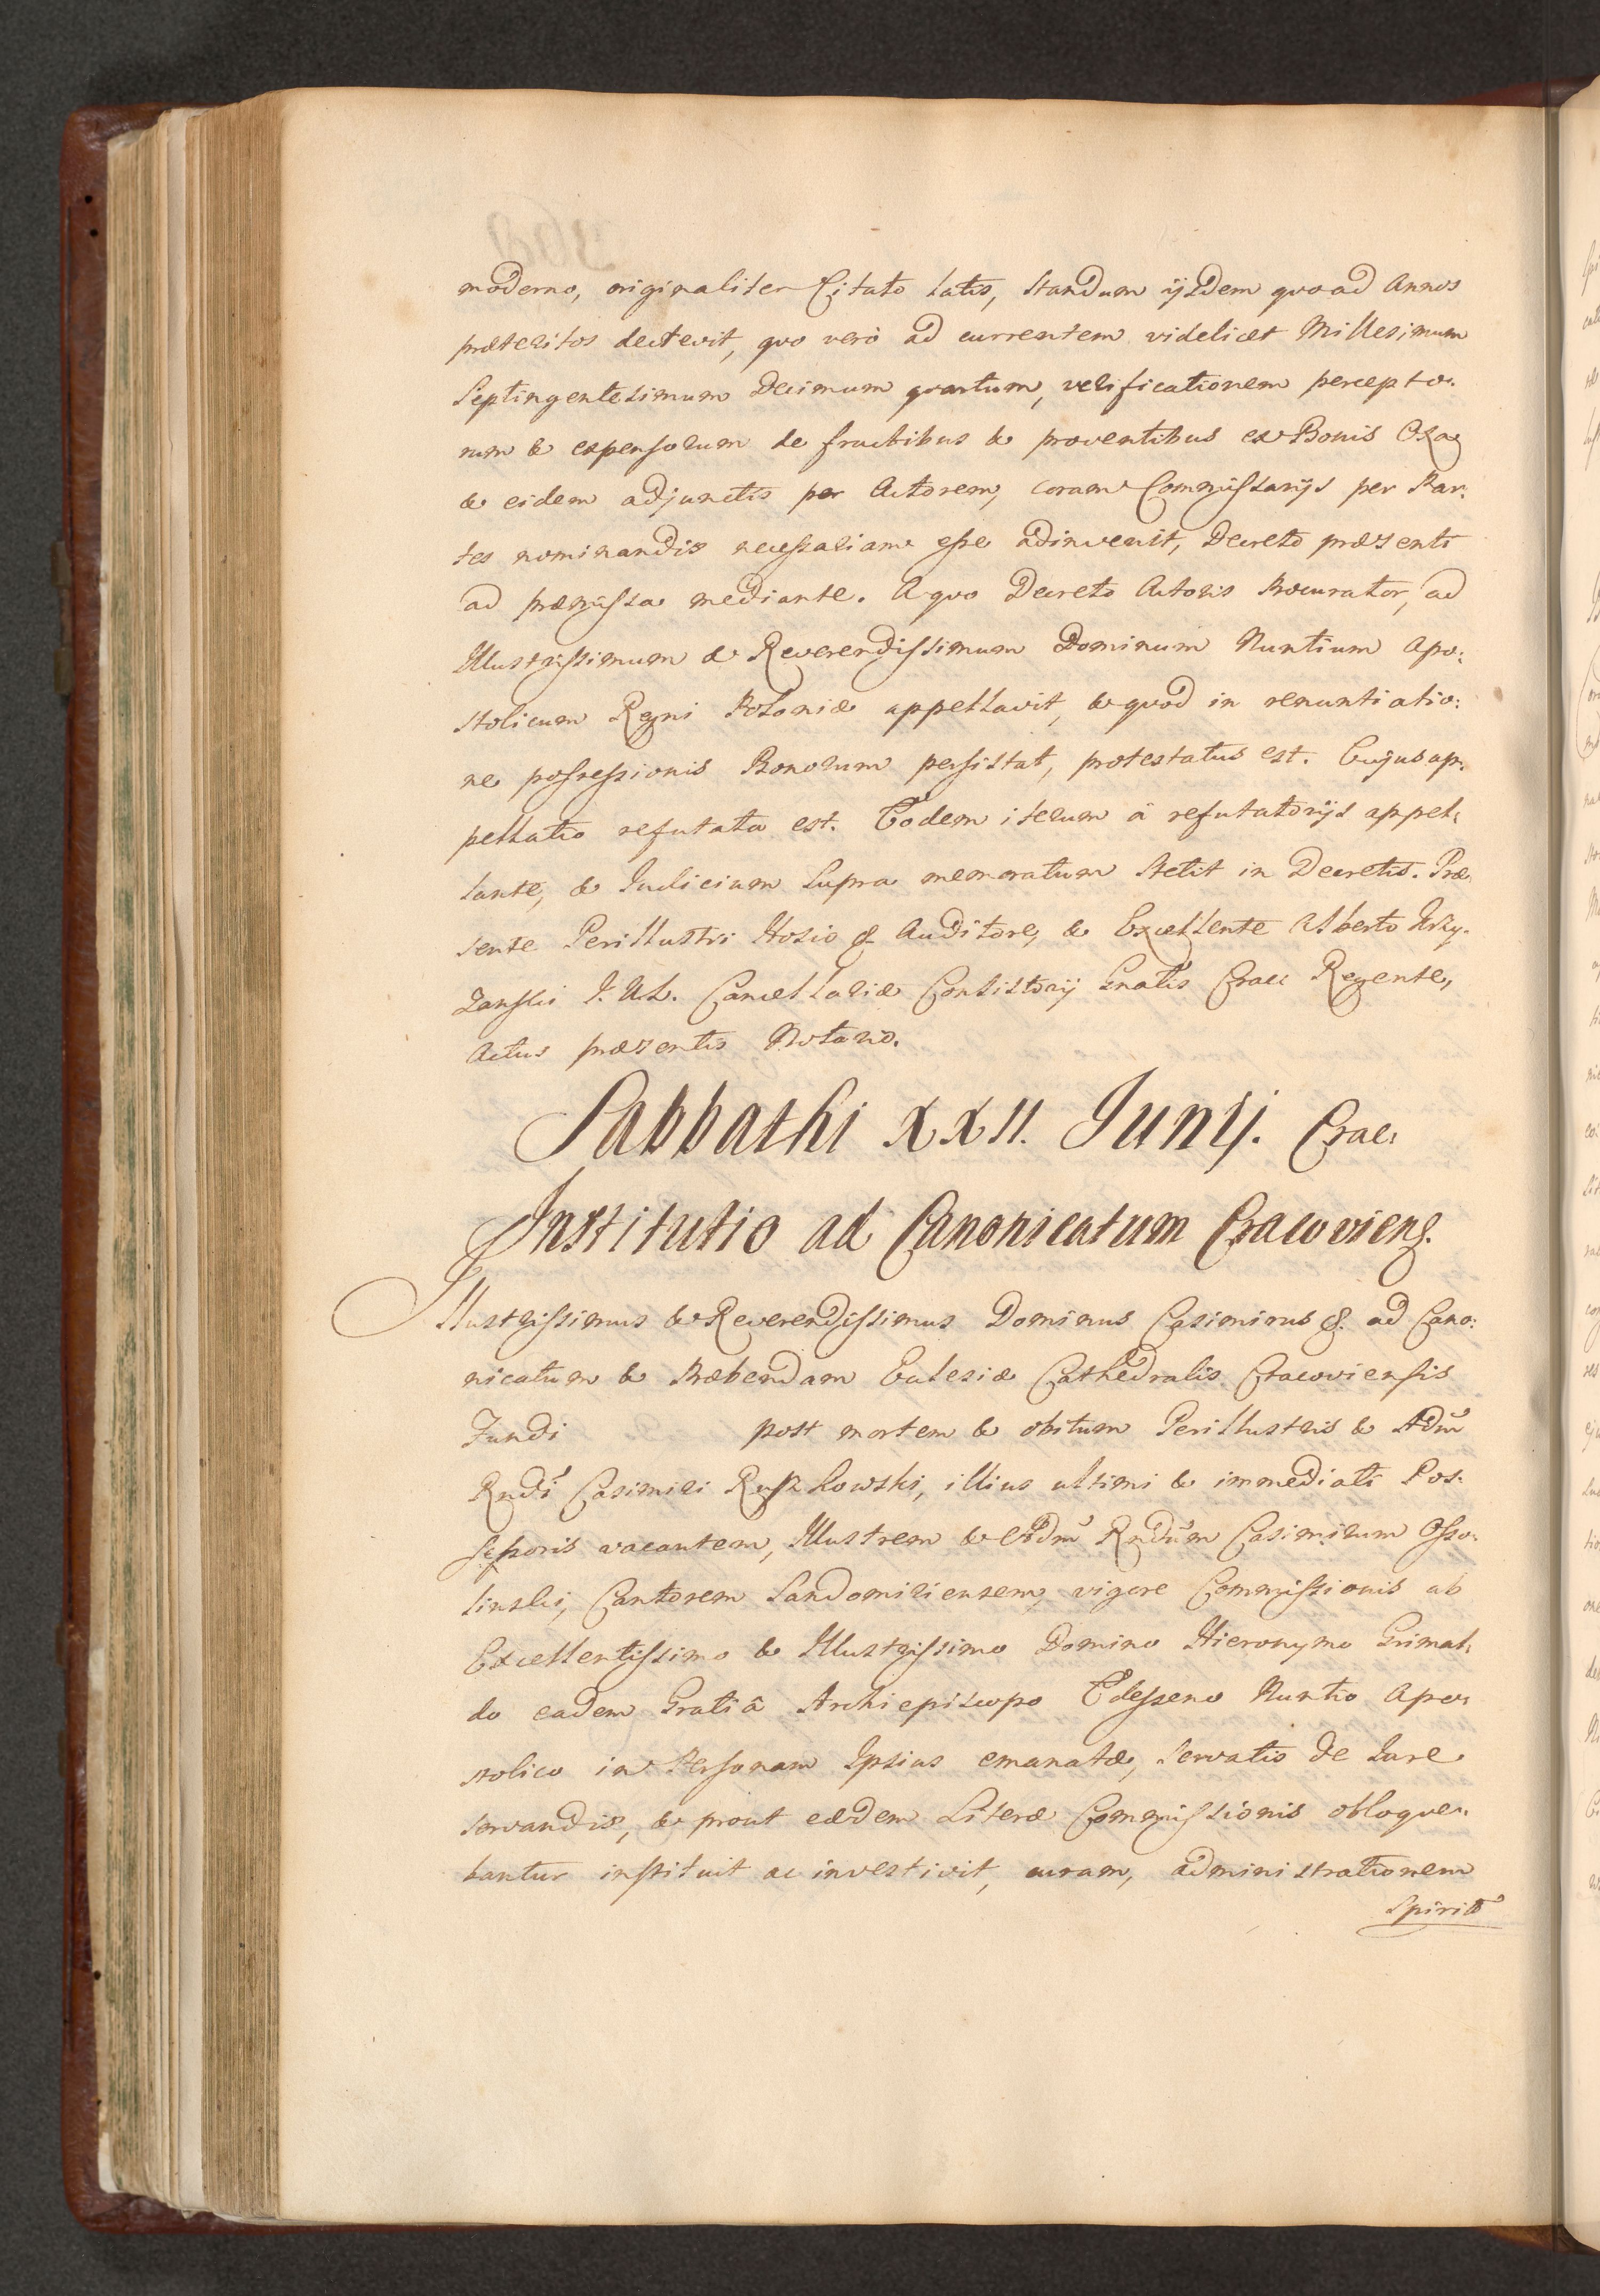 moderno, originaliter Citato latis, standum ijsdem quoad Annos
præteritos decrevit, quo verò ad currentem videlicet Millesimum
Septingentesimum Decimum quartum, verificationem percepto:
rum & expensorum de fructibus & proventibus ex Bonis
& eidem adjunctis per Actorem, coram Commissarijs per Par:
tes nominandis necessariam esse adinvenit, Decreto præsenti
ad præmissa mediante. A quo Decreto Actoris Procurator, ad
Illustrissimum & Reverendissimum Dominum Nuntium Apo:
stolicum Regni Poloniæ appellavit, & quod in renuntiatio:
ne possessionis Bonorum persistat, protestatus est. Cujus ap:
pellatio refutata est. Eodem iterum à refutatorijs appel:
lante, & Iudicium supra memoratum stetit in Decretis. Præ
sente Perillustri Hosio & Auditore, & Excellente Alberto Krzy:
zanski I. U. L. Cancellariæ Consistorij Gnalis Crac: Regente,
Actus præsentis Notario.
Sabbathi XXII. Junij. Crac:
Institutio ad Canonicatum Cracoviens.
Illustrissimus & Reverendissimus Dominus Casimirus &. ad Cano:
nicatum & Præbendam Ecclesiæ Cathedralis Cracoviensis
Fundi post mortem & obitum Perillustris & Adm̄
Rndi Casimiri Ruszkowski, illius ultimi & immediati Pos:
sessoris vacantem, Illustrem & Adm̄ Rndūm Casimirum Osso:
linski, Cantorem Sandomiriensem, vigore Commissionis ab
Excellentissimo & Illustrissimo Domino Hieronymo Grimal:
do eadem Gratiâ Archiepiscopo Edesseno Nuntio Apo:
stolico in Personam Ipsius emanatæ, servatis de Iure
servandis, & prout eædem Literæ Commissionis obloque:
bantur instituit ac investivit, curam, administrationem
Spirit̄